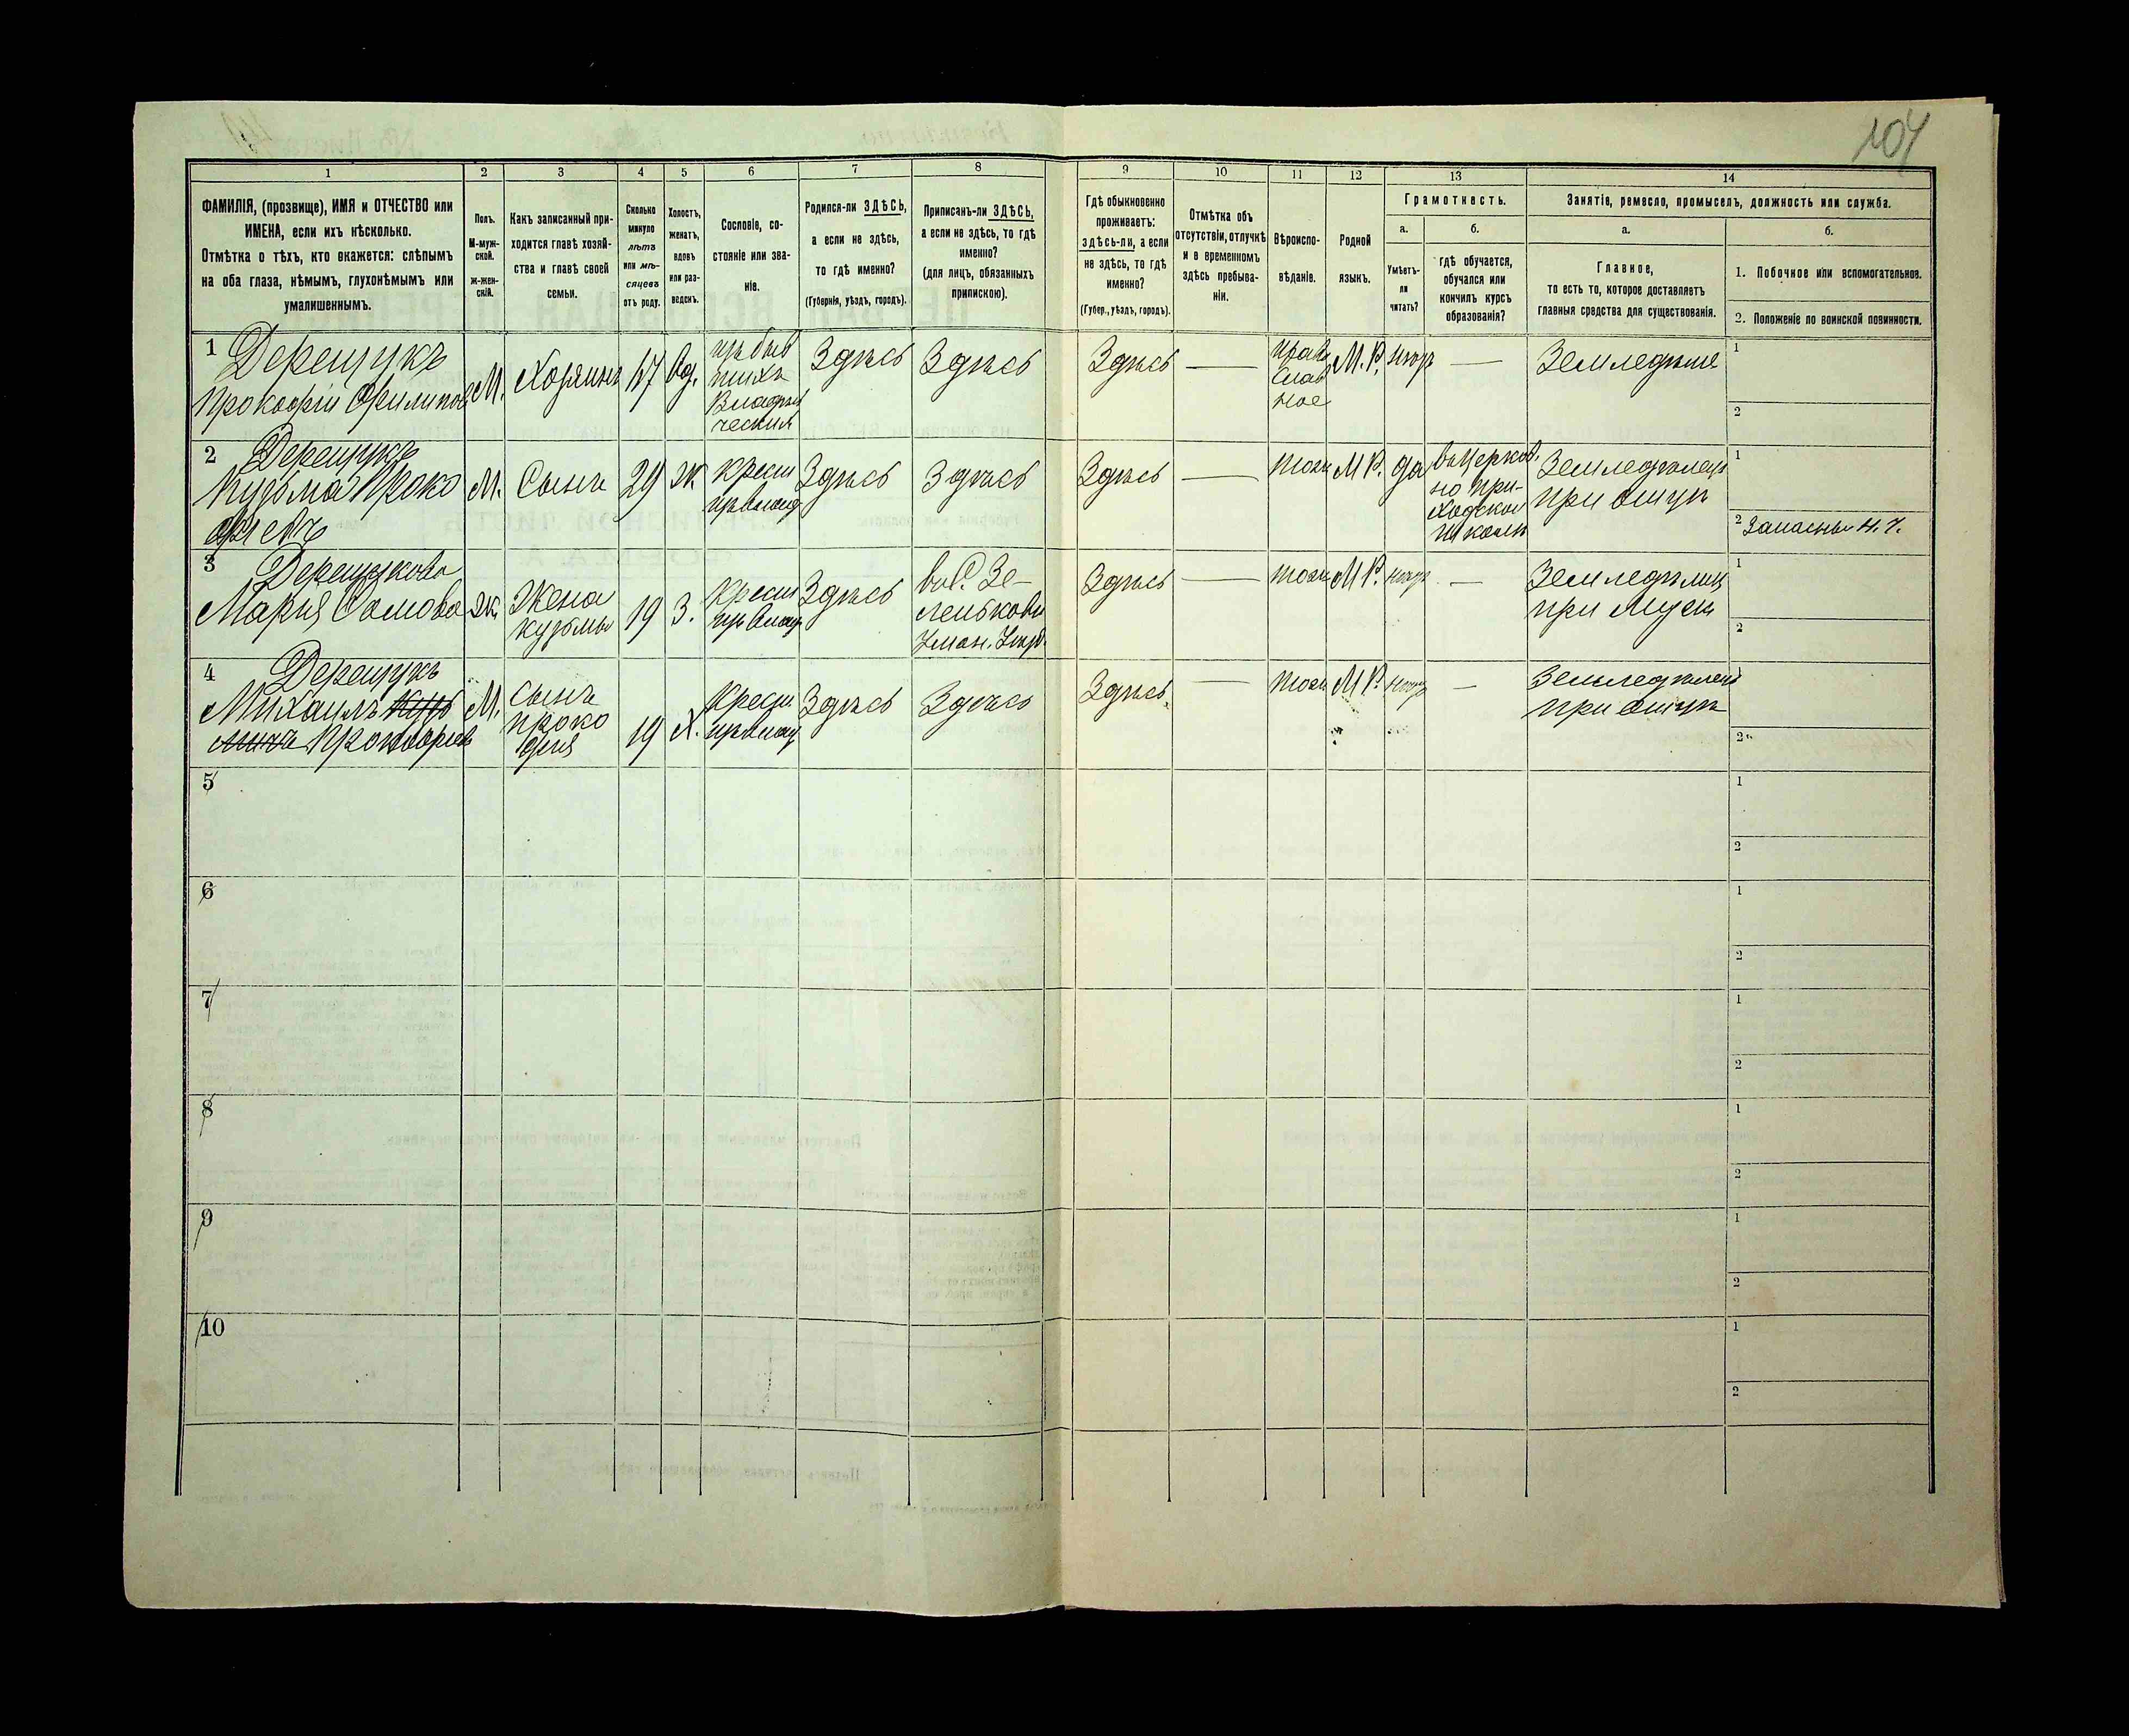 104
1 2 3 4 5 6 7 8 9 10 11 12 13 14
ФАМИЛІЯ, (прозвище), ИМЯ и ОТЧЕСТВО или
ИМЕНА, если ихъ нѣсколько.
Отмѣтка о тѣхъ, кто окажется: слѣпымъ
на оба глаза, нѣмымъ, глухонѣмымъ или
умалишеннымъ.
Полъ.
М-муж-
ской.
ж-жен-
скій.
Какъ записанный при-
ходится главѣ хозяй-
ства и главѣ своей
семьи.
Сколько
минуло
лѣтъ
или мѣ-
сяцевъ
отъ роду.
Холостъ,
женатъ,
вдовъ
или раз-
веденъ.
Сословіе, со-
стояніе или зва-
ніе.
Родился-ли ЗДѢСЬ,
а если не здѣсь,
то гдѣ именно?
(Губернія, уѣздъ, городъ).
Приписанъ-ли ЗДѢСЬ,
а если не здѣсь, то гдѣ
именно?
(для лицъ, обязанныхъ
припискою).
Гдѣ обыкновенно
проживаетъ:
здѣсь-ли, а если
не здѣсь, то гдѣ
именно?
(Губер., уѣздъ, городъ).
Отмѣтка объ
отсутствіи, отлучкѣ
и о временномъ
здѣсь пребыва-
ніи.
Вѣроиспо-
вѣданіе.
Родной
языкъ.
Грамотность.
а.
Умѣетъ-
ли
читать?
б.
гдѣ обучается,
обучался или
кончилъ курсъ
образованія?
Занятіе, ремесло, промыселъ, должность или служба.
а.
Главное,
то есть то, которое доставляетъ
главныя средства для существованія.
б.
1. Побочное или вспомогательное.
2. Положеніе по воинской повинности.
1 Дерещукъ
Прокофій Филипов
М.
Хозяинъ
Вд.
Здѣсь
Здѣсь
Здѣсь
—
Прав
Слав
ное
М. Р.
—
1
2
2 Дерещукъ
Кузьма Проко
фіевъ
М.
Сынъ
29
Ж
Здѣсь
Здѣсь
Здѣсь
—
М Р.
да
въ Церков.
но при-
ходской
школѣ
при отцѣ
1
2
3 Дерещукова
Марія
Ж.
Жена
Кузьмы
19
З.
Здѣсь
Здѣсь
—
М Р.
—
при Мужѣ
1
2
4 Дерещукъ
Михаилъ
Прокофіев
М.
Сынъ
Проко
фія
19
Х.
Здѣсь
Здѣсь
Здѣсь.
—
М Р.
—
при отцѣ
1
2
5
1
2
6
1
2
7
1
2
8
1
2
9
1
2
10
1
2